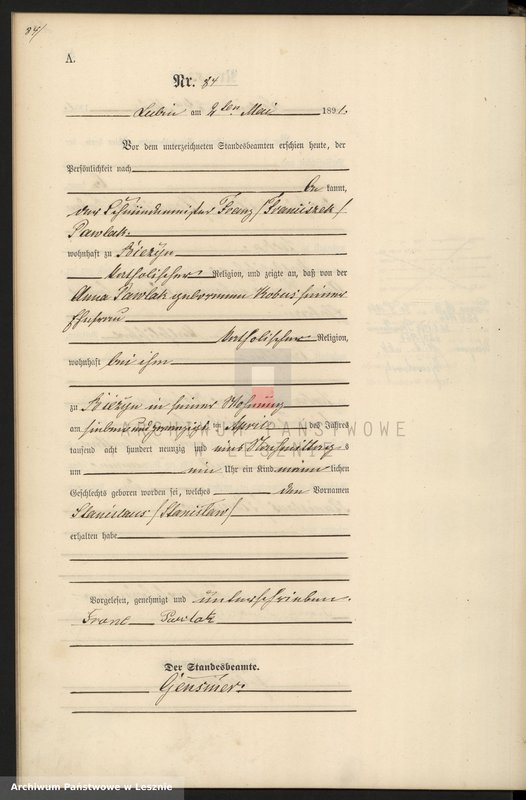 84/
A.
Nr. 84
Lubin am 2ten Mai 1891.
Vor dem unterzeichneten Standesbeamten erschien heute, der
Persönlichkeit nach
be kannt,
der Schmiedemeister Franz /Franciszek/
Pawlak
wohnhaft zu Bieżyn
katholischer Religion, und zeigte an, daß von der
Anna Pawlak geborenen Kobus seiner
Ehefrau
katholischer Religion,
wohnhaft bei ihm
zu Bieżyn in seiner Wohnung
am siebenundzwanzigsten April des Jahres
tausend acht hundert neunzig und eins Nachmittags
um ein Uhr ein Kind männ lichen
Geschlechts geboren worden sei, welches den Vornamen
Stanislaus /Stanisław/
erhalten habe
Vorgelesen, genehmigt und unterschrieben.
Franc Pawlak
Der Standesbeamte.
Gensmer.
ARCHIWUM PAŃSTWOWE
W LESZNIE
Archiwum Państwowe w Lesznie